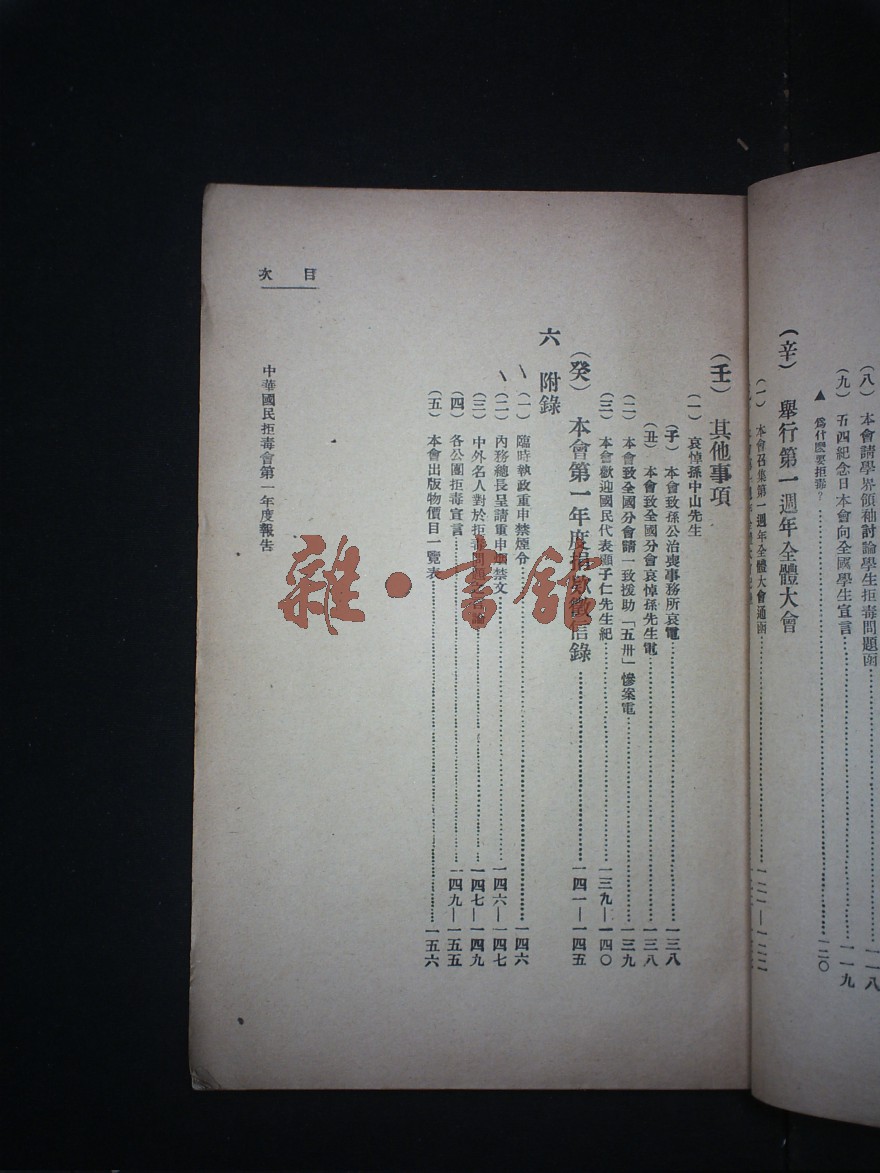 （八）本會請學界領袖討論學生拒毒問題函……一一八
（九）五四紀念日本會向全國學生宣言……一一九
▲爲什麽要拒毒？……一二〇
（辛）舉行第一週年全體大會
（一）本會召集第一週年全體大會通函……一二一—一二二
（壬）其他事項
（一）哀悼孫中山先生
（子）本會致孫公治喪事務所哀電……一三八
（丑）本會致全國分會哀悼孫先生電……一三八
（二）本會致全國分會請一致援助「五卅」慘案電……一三九
（三）本會歡迎國民代表顧子仁先生紀……一三九—一四〇
（癸）本會第一年度捐欵徵信錄……一四一—一四五
六 附錄
（一）臨時執政重申禁煙令……一四六
（二）內務總長呈請重申煙禁文……一四六—一四七
（三）中外名人對於拒毒問題之言論……一四七—一四九
（四）各公團拒毒宣言……一四九—一五五
（五）本會出版物價目一覽表……一五六
目次
中華國民拒毒會第一年度報告
雜·書館